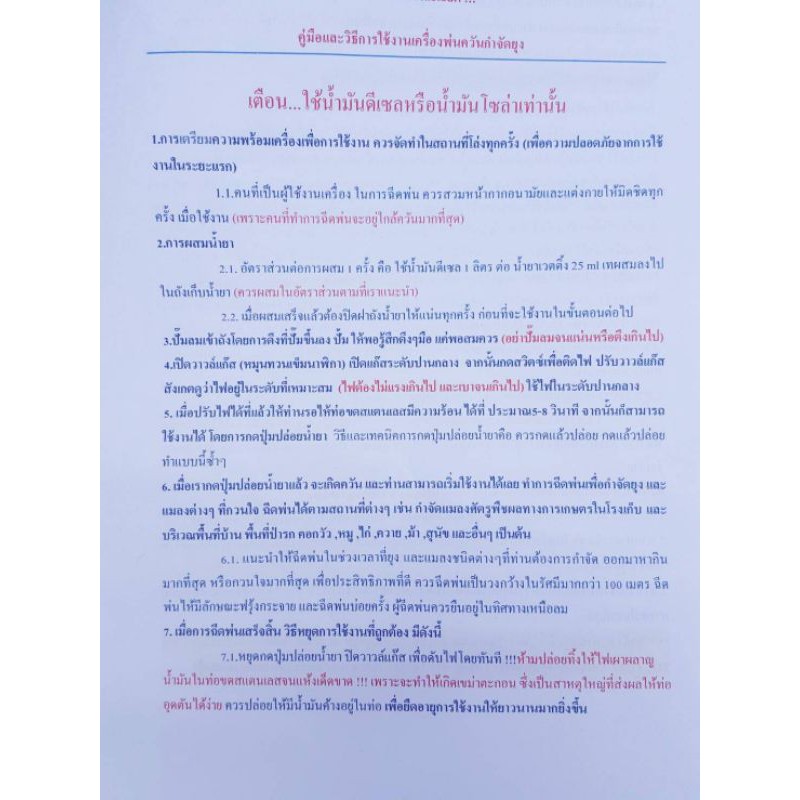 คู่มือและวิธีการใช้งานเครื่องพ่นควันกำจัดยุง
เตือน...ใช้น้ำมันดีเซลหรือน้ำมันโซล่าเท่านั้น
1.การเตรียมความพร้อมเครื่องเพื่อการใช้งาน ควรจัดทำในสถานที่โล่งทุกครั้ง (เพื่อความปลอดภัยจากการใช้
งานในระยะแรก)
1.1.คนที่เป็นผู้ใช้งานเครื่อง ในการฉีดพ่น ควรสวมหน้ากากอนามัยและแต่งกายให้มิดชิดทุก
ครั้ง เมื่อใช้งาน (เพราะคนที่ทำการฉีดพ่นจะอยู่ใกล้ควันมากที่สุด)
2.การผสมน้ำยา
2.1. อัตราส่วนต่อการผสม 1 ครั้ง คือ ใช้น้ำมันดีเซล 1 ลิตร ต่อ น้ำยาเวตติ้ง 25 ml เทผสมลงไป
ในถังเก็บน้ำยา (ควรผสมในอัตราส่วนตามที่เราแนะนำ)
2.2. เมื่อผสมเสร็จแล้วต้องปิดฝาถังน้ำยาให้แน่นทุกครั้ง ก่อนที่จะใช้งานในขั้นตอนต่อไป
3.ปั๊มลมเข้าถังโดยการดึงที่ปั๊มขึ้นลง ปั๊ม ให้พอรู้สึกตึงๆมือ แค่พอสมควร (อย่าปั๊มลมจนแน่นหรือตึงเกินไป)
4.เปิดวาวล์แก๊ส (หมุนทวนเข็มนาฬิกา) เปิดแก๊สระดับปานกลาง จากนั้นกดสวิตช์เพื่อติดไฟ ปรับวาวล์แก๊ส
สังเกตดูว่าไฟอยู่ในระดับที่เหมาะสม (ไฟต้องไม่แรงเกินไป และเบาจนเกินไป) ใช้ไฟในระดับปานกลาง
5. เมื่อปรับไฟได้ที่แล้วให้ท่านรอให้ท่อขดสแตนเลสมีความร้อน ได้ที่ ประมาณ5-8 วินาที จากนั้นก็สามารถ
ใช้งานได้ โดยการกดปุ่มปล่อยน้ำยา วิธีและเทคนิคการกดปุ่มปล่อยน้ำยาคือ ควรกดแล้วปล่อย กดแล้วปล่อย
ทำแบบนี้ซ้ำๆ
6. เมื่อเรากดปุ่มปล่อยน้ำยาแล้ว จะเกิดควัน และท่านสามารถเริ่มใช้งานได้เลย ทำการฉีดพ่นเพื่อกำจัดยุง และ
แมลงต่างๆ ที่กวนใจ ฉีดพ่นได้ตามสถานที่ต่างๆ เช่น กำจัดแมลงศัตรูพืชผลทางการเกษตรในโรงเก็บ และ
บริเวณพื้นที่บ้าน พื้นที่ป่ารก คอกวัว ,หมู ,ไก่ ,ควาย ,ม้า ,สุนัข และอื่นๆ เป็นต้น
6.1. แนะนำให้ฉีดพ่นในช่วงเวลาที่ยุง และแมลงชนิดต่างๆที่ท่านต้องการกำจัด ออกมาหากิน
มากที่สุด หรือกวนใจมากที่สุด เพื่อประสิทธิภาพที่ดี ควรฉีดพ่นเป็นวงกว้างในรัศมีมากกว่า 100 เมตร ฉีด
พ่นให้มีลักษณะฟรุ้งกระจาย และฉีดพ่นบ่อยครั้ง ผู้ฉีดพ่นควรยืนอยู่ในทิศทางเหนือลม
7. เมื่อการฉีดพ่นเสร็จสิ้น วิธีหยุดการใช้งานที่ถูกต้อง มีดังนี้
7.1.หยุดกดปุ่มปล่อยน้ำยา ปิดวาวล์แก๊ส เพื่อดับไฟโดยทันที !!!ห้ามปล่อยทิ้งให้ไฟเผาผลาญ
น้ำมันในท่อขดสแตนเลสจนแห้งเด็ดขาด !!! เพราะจะทำให้เกิดเขม่าตะกอน ซึ่งเป็นสาหตุใหญ่ที่ส่งผลให้ท่อ
อุดตันได้ง่าย ควรปล่อยให้มีน้ำมันค้างอยู่ในท่อ เพื่อยืดอายุการใช้งานให้ยาวนานมากยิ่งขึ้น